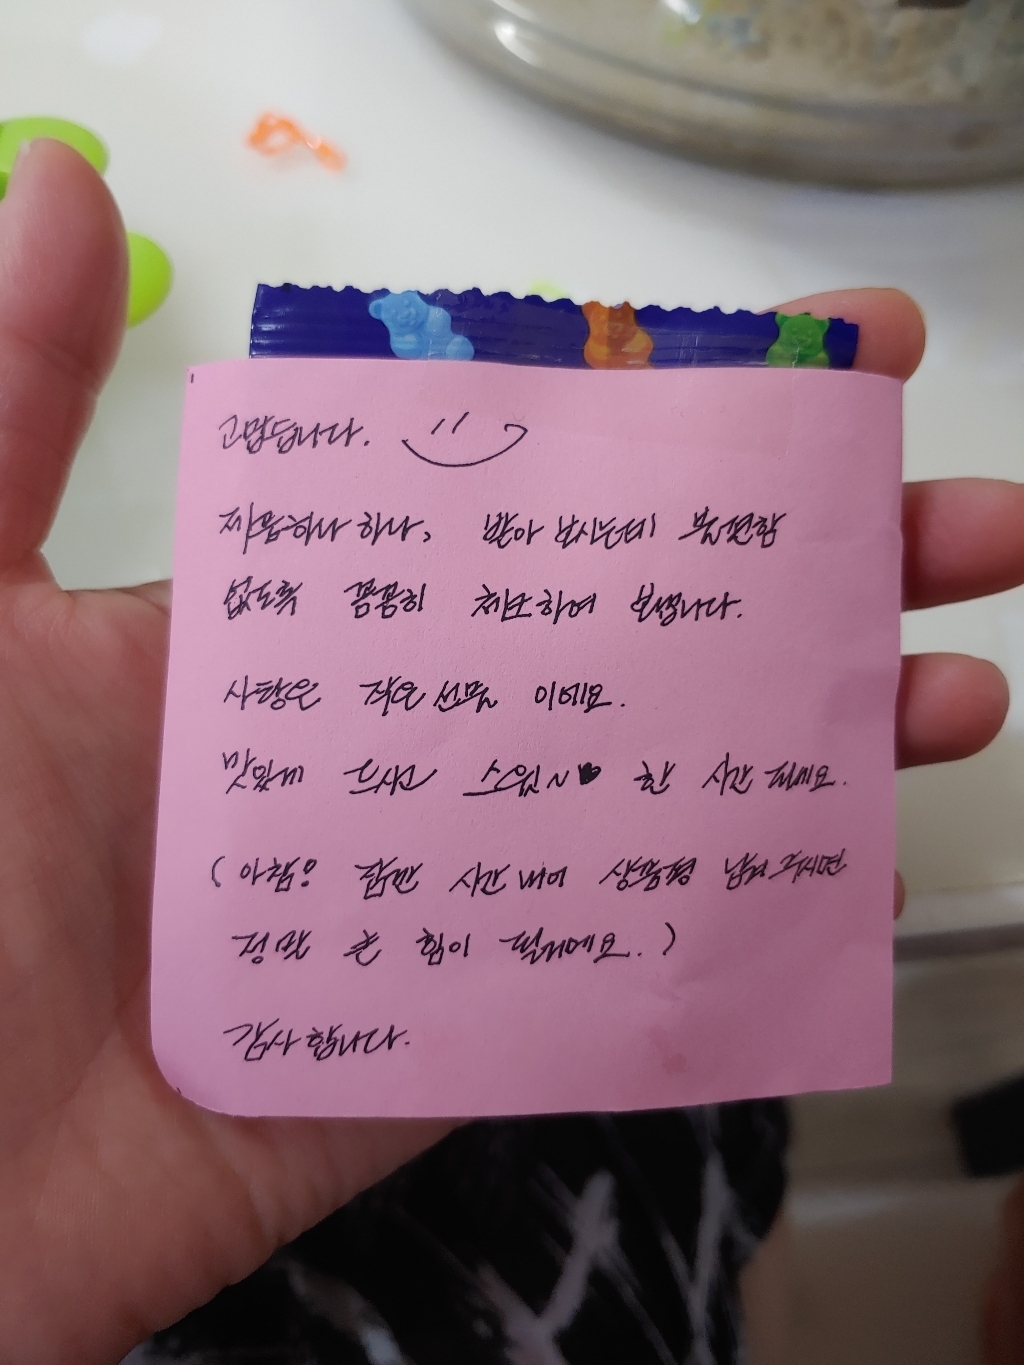 고맙습니다.
제품하나 하나, 받아 보시는데 불편함
없도록 꼼꼼히 체크하여 보냅니다.
사탕은 작은 선물 이에요.
맛있게 드시고 스윗~♥ 한 시간 되세요.
( 아참! 잠깐 시간 내어 상품평 남겨 주시면
정말 큰 힘이 될거에요. )
감사 합니다.